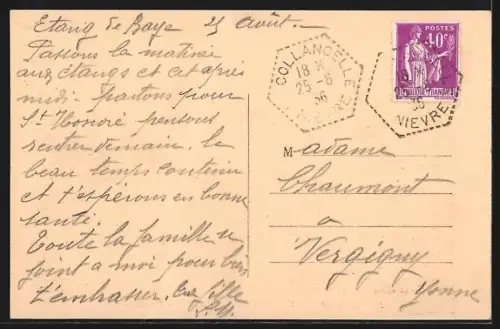 Etang de Baye 25 août.
Passons la matinée
aux étangs et cet après
midi partons pour
St Honoré pensons
rentrer demain. le
beau temps continu
et t'espérons en bonne
santé.
Toute la famille se
joint a moi pour bien
t'embrasser. 
COLLANCELLE
18 H
25 - 8
36
NIEVRE
POSTES
40c
36
NIEVRE
Madame
Chaumont
a
Vergigny
Yonne